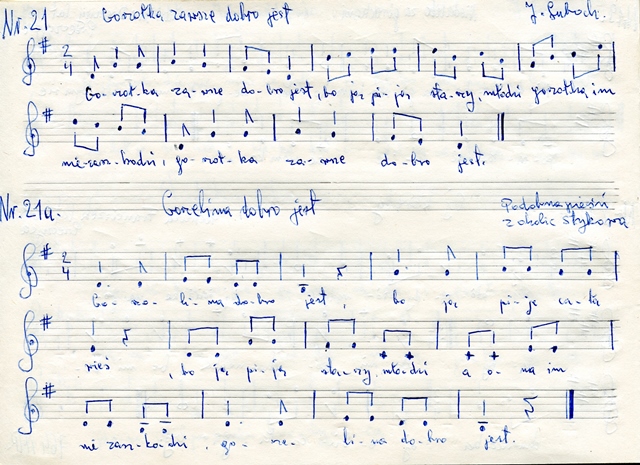 Nr. 21 Gorzołka zawsze dobro jest J. Suboch.
2 4
Go-rzoł-ka za-wsze do-bro jest, bo ją pi-ją sta-rzy, młodzi gorzołka im
nie-zaszko-dzi, go-rzoł-ka za-wsze do-bro jest.
Nr. 21a. Gorzelina dobro jest Podobna pieśń
z okolic
2 4
Go-rze-li-na do-bro jest, bo ją pi-je ca-ła
wieś, bo ją pi-ją sta-rzy, mło-dzi a o-na im
nie zaszko-dzi, go-rze-li-na do-bro jest.